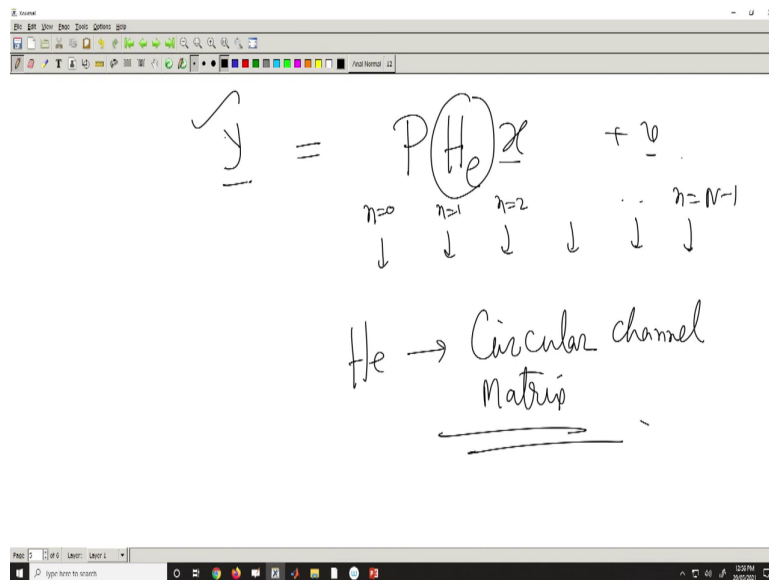 Xournal
File Edit View Page Tools Options Help
Arial Normal 12
y = P He x + v
n=0 n=1 n=2 .. n=N-1
He → Circular channel
Matrix
Page 5 of 6 Layer: Layer 1
Type here to search
12:56 PM